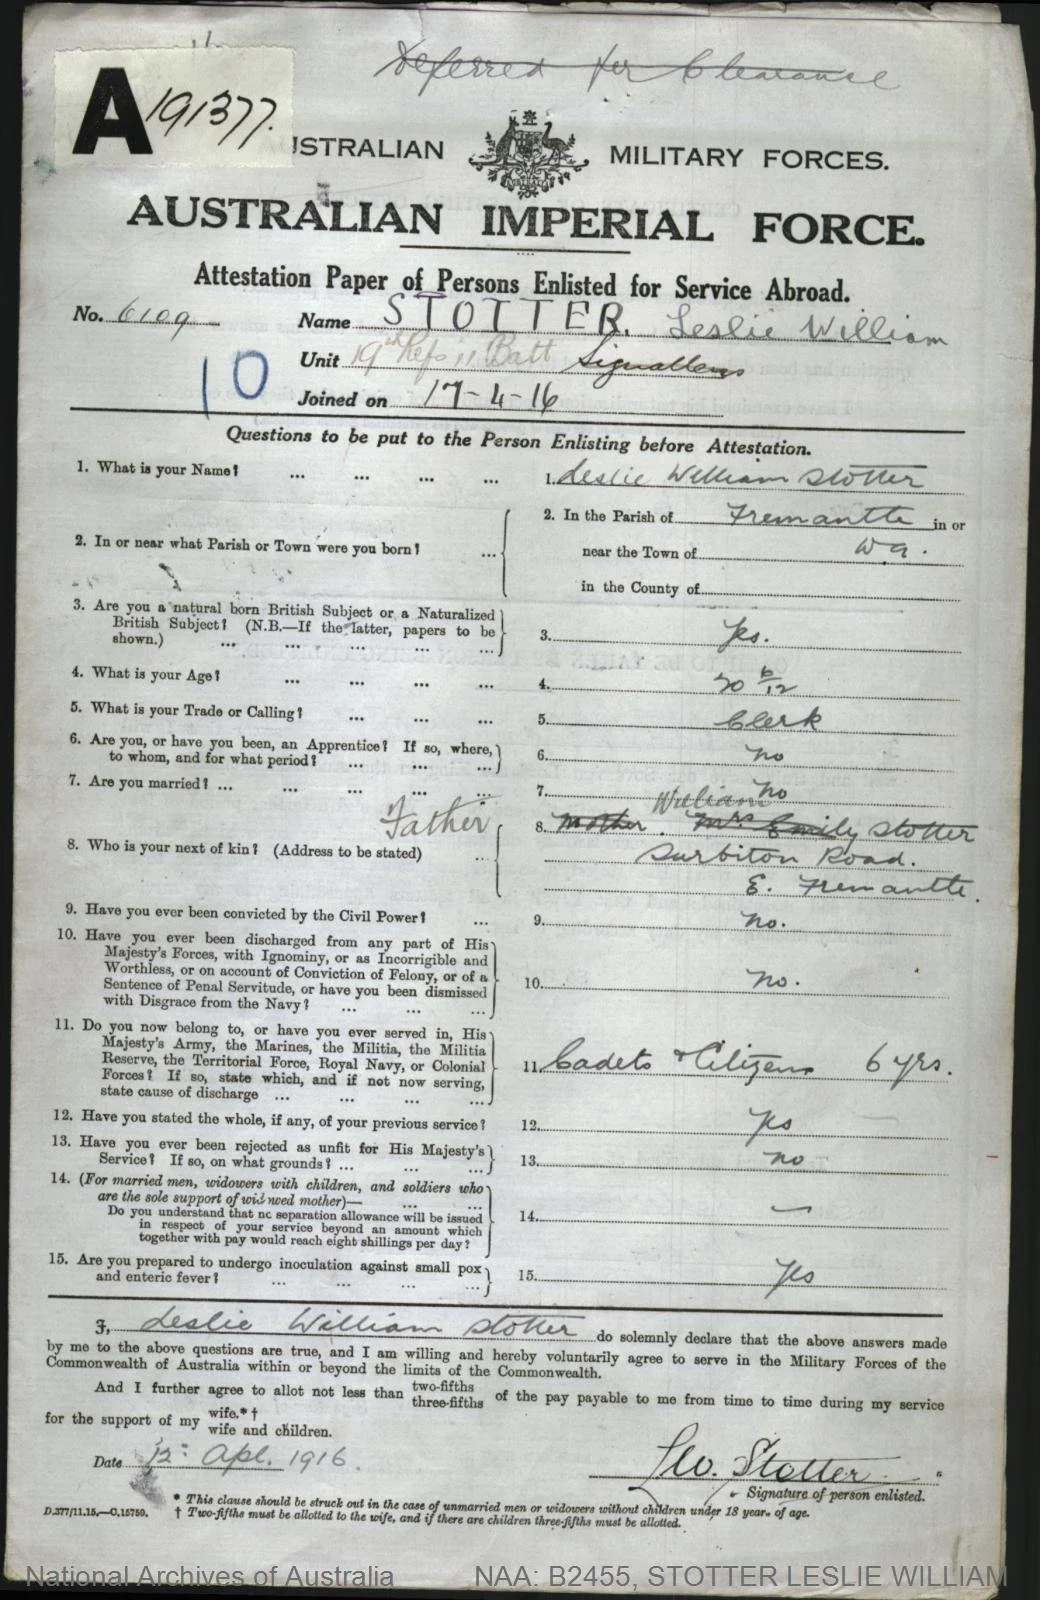 Deferred for Clearance
A 191377.
AUSTRALIAN MILITARY FORCES.
AUSTRALIAN IMPERIAL FORCE.
Attestation Paper of Persons Enlisted for Service Abroad.
No. 6109 Name STOTTER. Leslie William
10 Unit 19th Refs 11 Batt Signallers
Joined on 17-4-16
Questions to be put to the Person Enlisting before Attestation.
1. What is your Name? ... ... ... ... 1. Leslie William Stotter
2. In or near what Parish or Town were you born? ... 2. In the Parish of Fremantle in or
near the Town of W.A.
in the County of
3. Are you a natural born British Subject or a Naturalized
British Subject? (N.B.—If the latter, papers to be
shown.) ... ... ... ... ... 3. Yes.
4. What is your Age? ... ... ... ... 4. 20 6/12
5. What is your Trade or Calling? ... ... ... 5. Clerk
6. Are you, or have you been, an Apprentice? If so, where,
to whom, and for what period? ... ... ... 6. No
7. Are you married? ... ... ... ... ... 7. No
William
Father 8. Mother. Mrs Emily Stotter
8. Who is your next of kin? (Address to be stated) ... Surbiton Road.
E. Fremantle.
9. Have you ever been convicted by the Civil Power? ... 9. No.
10. Have you ever been discharged from any part of His
Majesty's Forces, with Ignominy, or as Incorrigible and
Worthless, or on account of Conviction of Felony, or of a
Sentence of Penal Servitude, or have you been dismissed
with Disgrace from the Navy? ... ... ... 10. No.
11. Do you now belong to, or have you ever served in, His
Majesty's Army, the Marines, the Militia, the Militia
Reserve, the Territorial Force, Royal Navy, or Colonial
Forces? If so, state which, and if not now serving,
state cause of discharge ... ... ... ... 11. Cadets & Citizens 6 yrs.
12. Have you stated the whole, if any, of your previous service? 12. Yes
13. Have you ever been rejected as unfit for His Majesty's
Service? If so, on what grounds? ... ... ... 13. No
14. (For married men, widowers with children, and soldiers who
are the sole support of widowed mother)— ... ...
Do you understand that no separation allowance will be issued
in respect of your service beyond an amount which
together with pay would reach eight shillings per day? 14. —
15. Are you prepared to undergo inoculation against small pox
and enteric fever? ... ... ... ... 15. Yes
I, Leslie William Stotter do solemnly declare that the above answers made
by me to the above questions are true, and I am willing and hereby voluntarily agree to serve in the Military Forces of the
Commonwealth of Australia within or beyond the limits of the Commonwealth.
And I further agree to allot not less than two-fifths three-fifths of the pay payable to me from time to time during my service
for the support of my wife.*† wife and children.
Date 12: Apl. 1916.
Leo. Stotter
Signature of person enlisted.
* This clause should be struck out in the case of unmarried men or widowers without children under 18 years of age.
D.377/11.15.—C.15750. † Two-fifths must be allotted to the wife, and if there are children three-fifths must be allotted.
National Archives of Australia NAA: B2455, STOTTER LESLIE WILLIAM